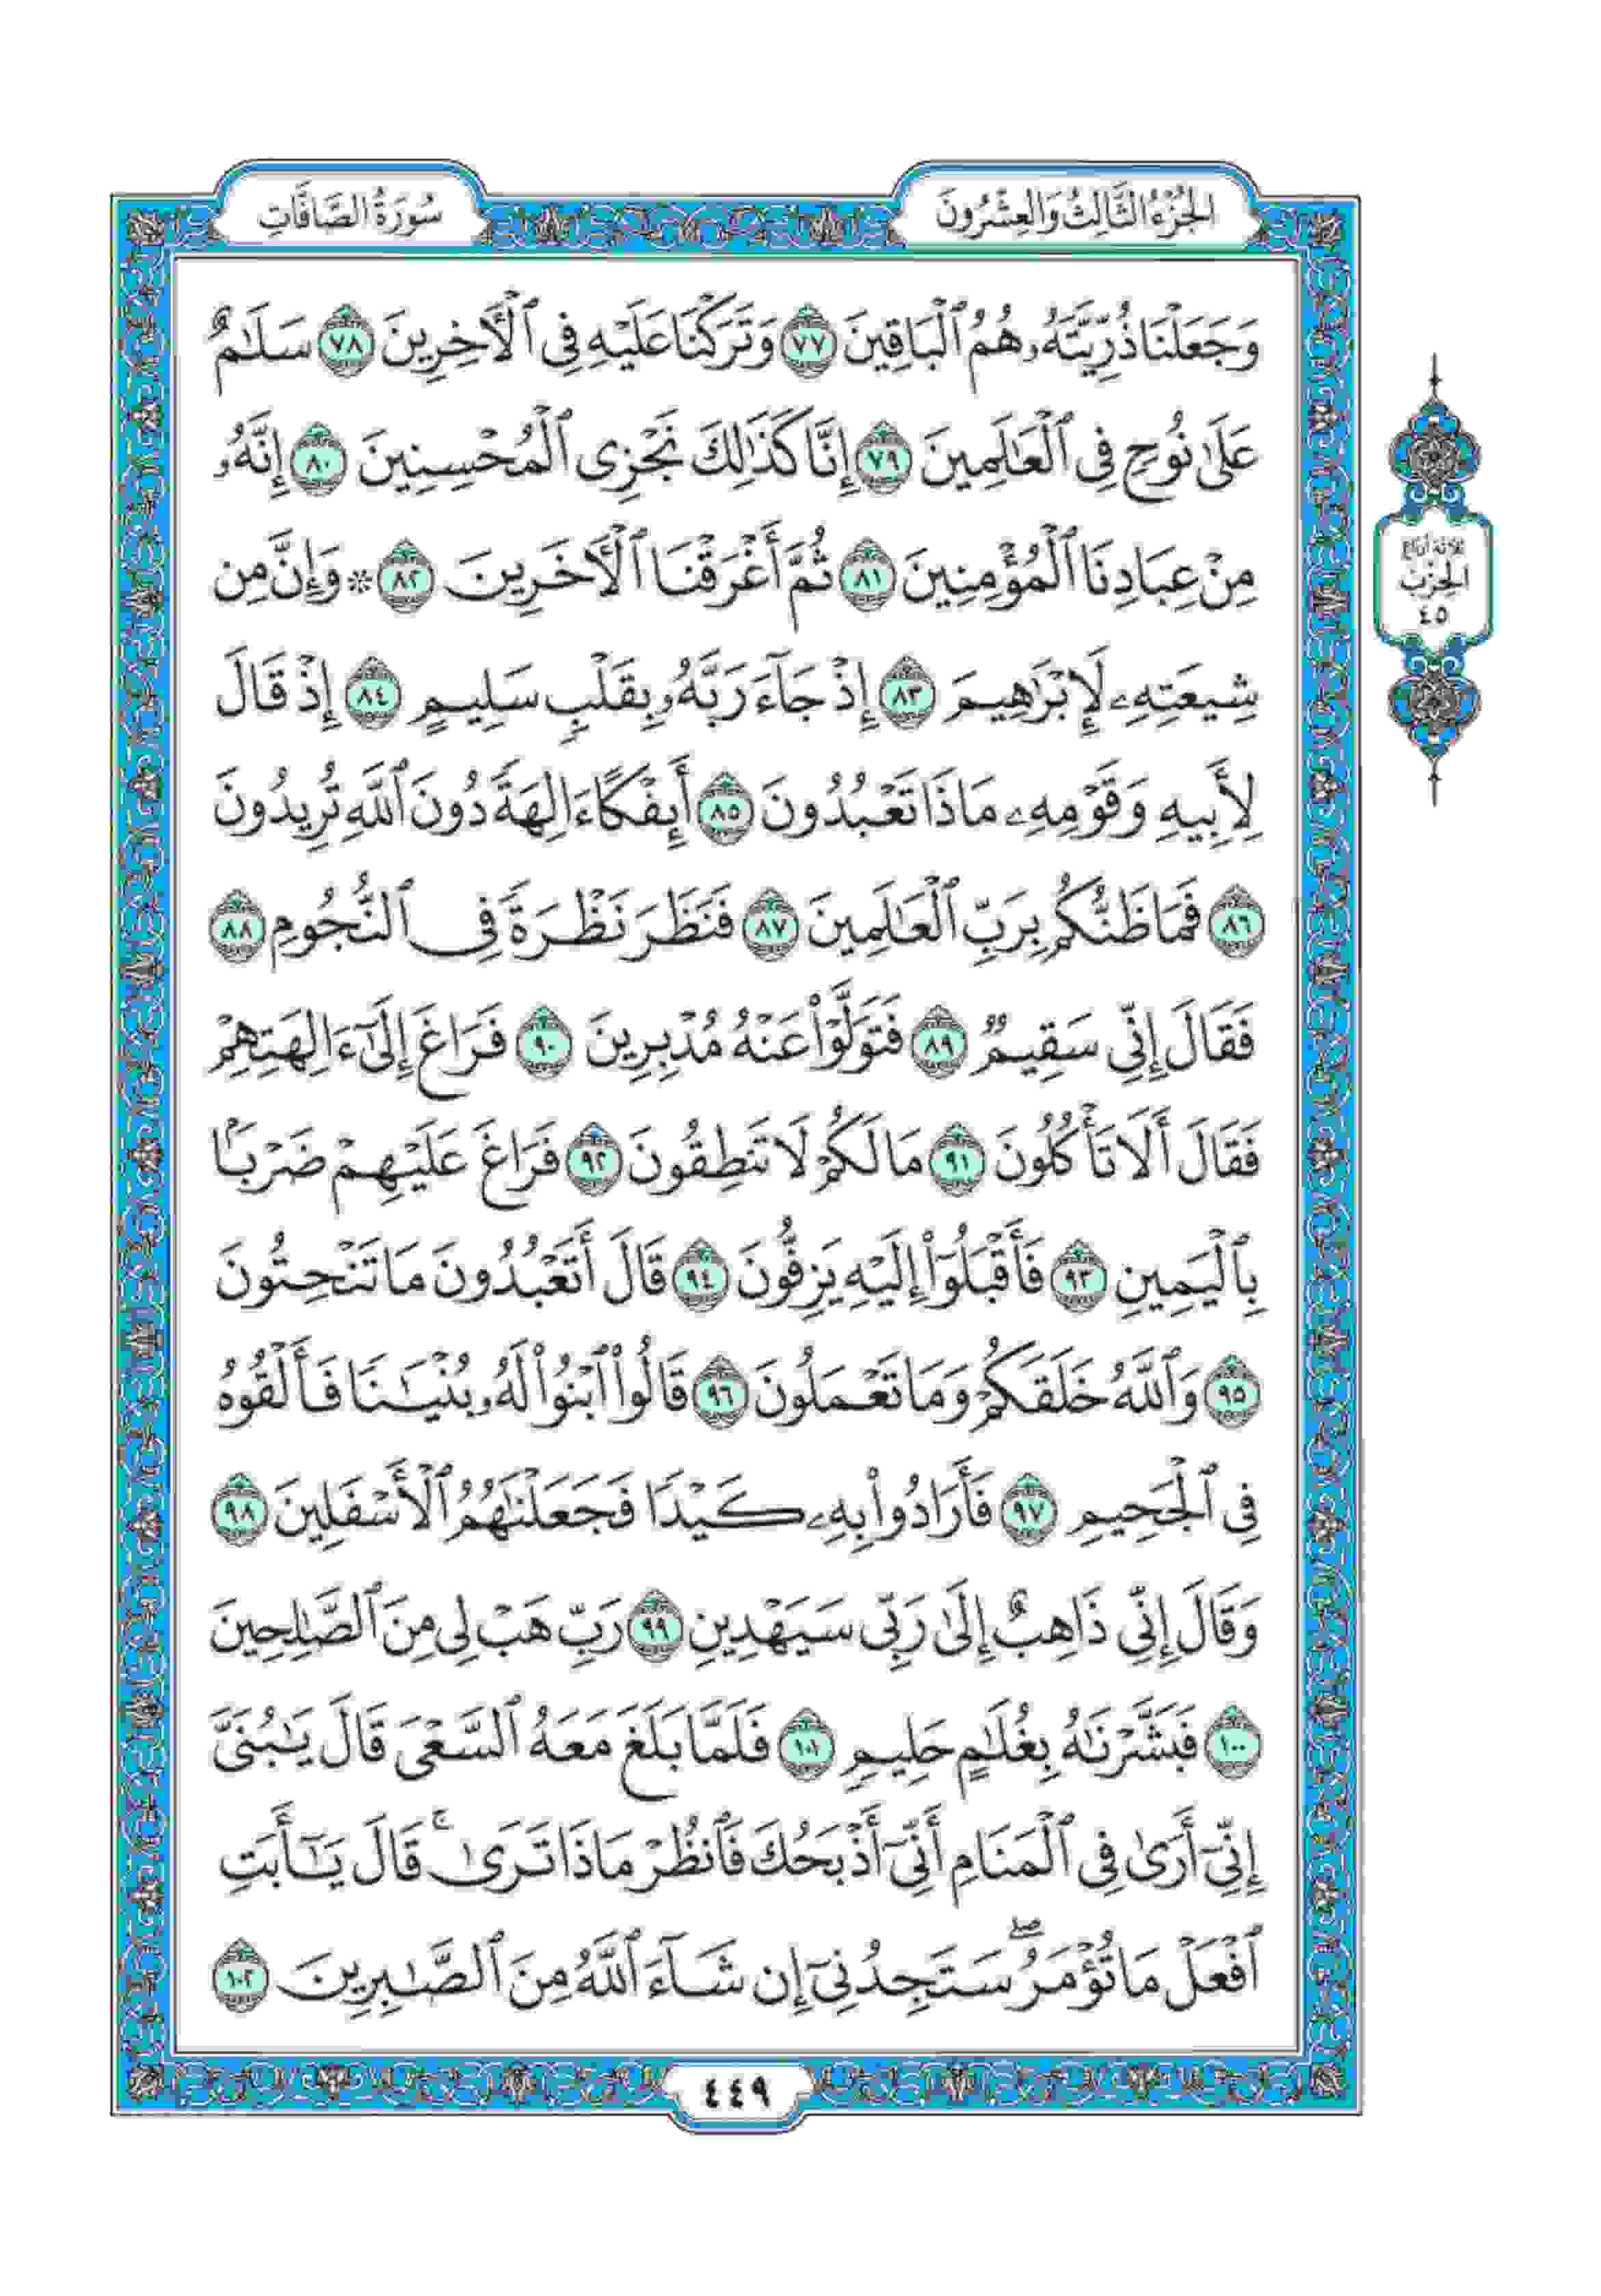 الجُزْءُ الثَّالِثُ وَالعِشْرُونَ
سُورَةُ الصَّافَّاتِ
وَجَعَلْنَا ذُرِّيَّتَهُۥ هُمُ ٱلْبَاقِينَ ٧٧ وَتَرَكْنَا عَلَيْهِ فِى ٱلْأَخِرِينَ ٧٨ سَلَٰمٌ
عَلَىٰ نُوحٍ فِى ٱلْعَٰلَمِينَ ٧٩ إِنَّا كَذَٰلِكَ نَجْزِى ٱلْمُحْسِنِينَ ٨٠ إِنَّهُۥ
مِنْ عِبَادِنَا ٱلْمُؤْمِنِينَ ٨١ ثُمَّ أَغْرَقْنَا ٱلْأَخَرِينَ ٨٢ ۞ وَإِنَّ مِن
شِيعَتِهِۦ لَإِبْرَٰهِيمَ ٨٣ إِذْ جَآءَ رَبَّهُۥ بِقَلْبٍ سَلِيمٍ ٨٤ إِذْ قَالَ
لِأَبِيهِ وَقَوْمِهِۦ مَاذَا تَعْبُدُونَ ٨٥ أَئِفْكًا ءَالِهَةً دُونَ ٱللَّهِ تُرِيدُونَ
٨٦ فَمَا ظَنُّكُم بِرَبِّ ٱلْعَٰلَمِينَ ٨٧ فَنَظَرَ نَظْرَةً فِى ٱلنُّجُومِ ٨٨
فَقَالَ إِنِّى سَقِيمٌ ٨٩ فَتَوَلَّوْا۟ عَنْهُ مُدْبِرِينَ ٩٠ فَرَاغَ إِلَىٰٓ ءَالِهَتِهِمْ
فَقَالَ أَلَا تَأْكُلُونَ ٩١ مَا لَكُمْ لَا تَنطِقُونَ ٩٢ فَرَاغَ عَلَيْهِمْ ضَرْبًۢا
بِٱلْيَمِينِ ٩٣ فَأَقْبَلُوٓا۟ إِلَيْهِ يَزِفُّونَ ٩٤ قَالَ أَتَعْبُدُونَ مَا تَنْحِتُونَ
٩٥ وَٱللَّهُ خَلَقَكُمْ وَمَا تَعْمَلُونَ ٩٦ قَالُوا۟ ٱبْنُوا۟ لَهُۥ بُنْيَٰنًا فَأَلْقُوهُ
فِى ٱلْجَحِيمِ ٩٧ فَأَرَادُوا۟ بِهِۦ كَيْدًا فَجَعَلْنَٰهُمُ ٱلْأَسْفَلِينَ ٩٨
وَقَالَ إِنِّى ذَاهِبٌ إِلَىٰ رَبِّى سَيَهْدِينِ ٩٩ رَبِّ هَبْ لِى مِنَ ٱلصَّٰلِحِينَ
١٠٠ فَبَشَّرْنَٰهُ بِغُلَٰمٍ حَلِيمٍ ١٠١ فَلَمَّا بَلَغَ مَعَهُ ٱلسَّعْىَ قَالَ يَٰبُنَىَّ
إِنِّىٓ أَرَىٰ فِى ٱلْمَنَامِ أَنِّىٓ أَذْبَحُكَ فَٱنظُرْ مَاذَا تَرَىٰ ۚ قَالَ يَٰٓأَبَتِ
ٱفْعَلْ مَا تُؤْمَرُ ۖ سَتَجِدُنِىٓ إِن شَآءَ ٱللَّهُ مِنَ ٱلصَّٰبِرِينَ ١٠٢
ثلاثة أرباع
الحِزْب
٤٥
٤٤٩